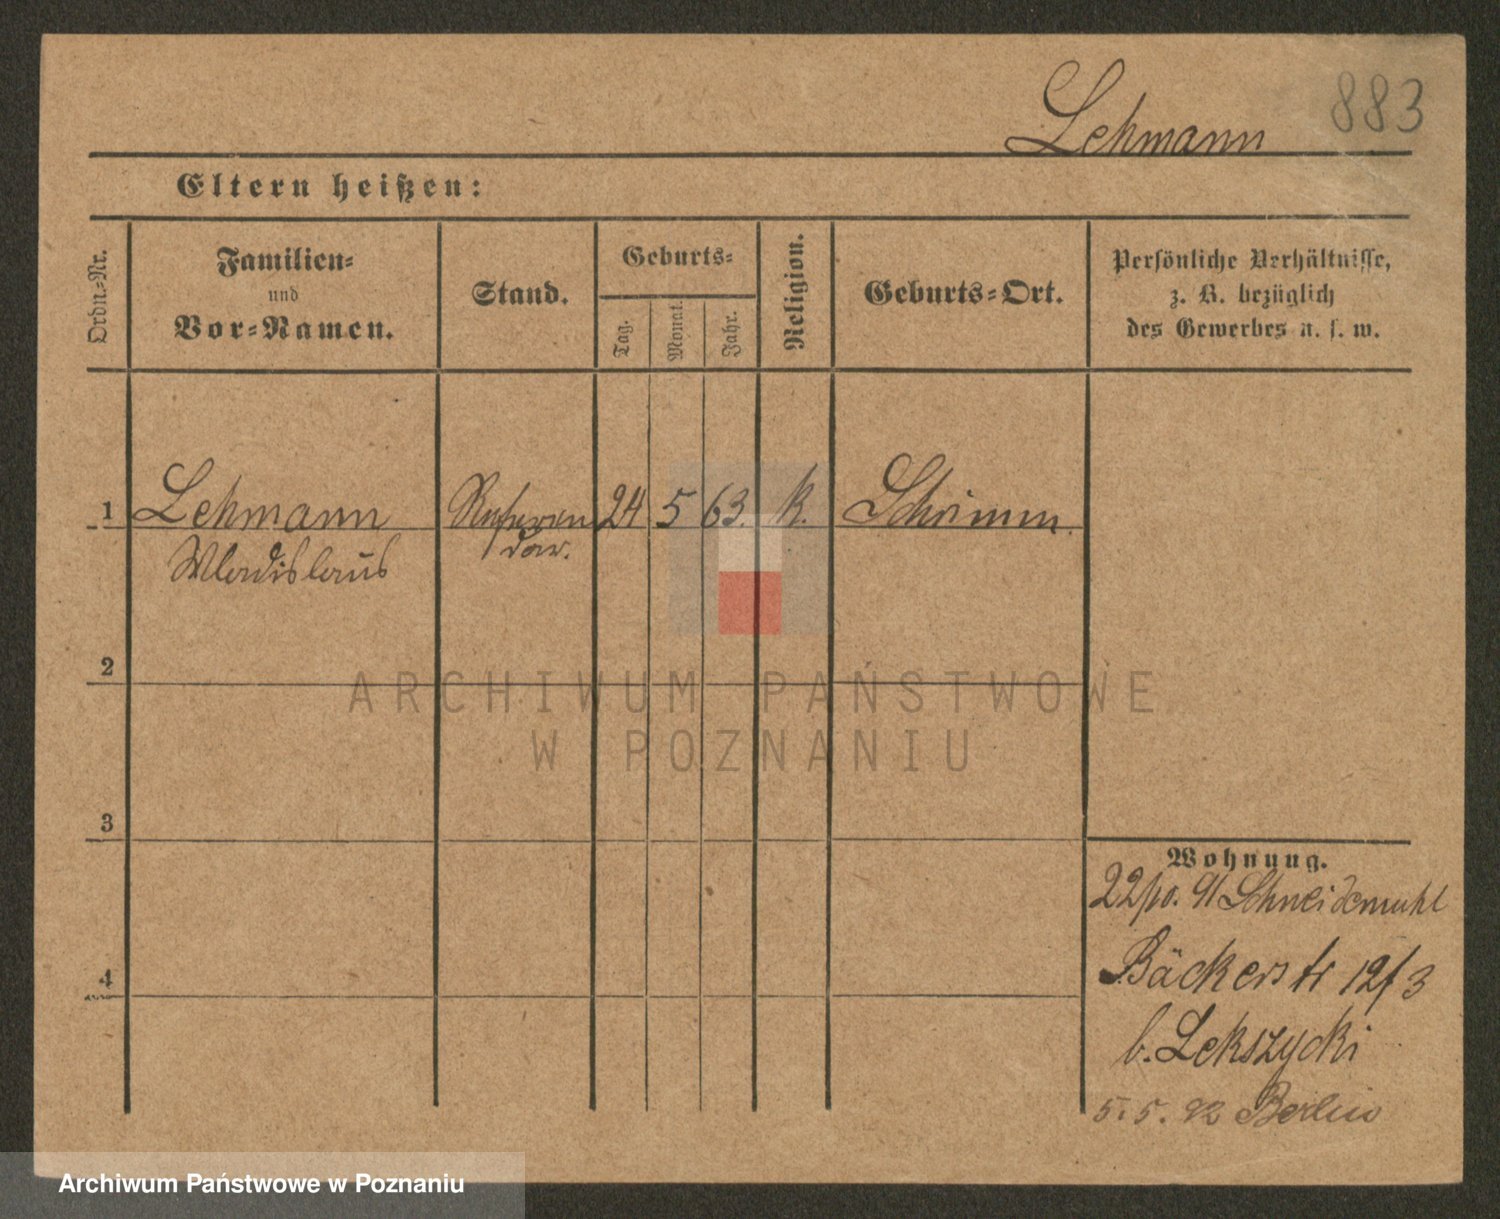 883
Lehmann
Eltern heißen:
Ordn.-Nr.
Familien-
und
Vor-Namen.
Stand.
Geburts-
Tag.
Monat.
Jahr.
Religion.
Geburts-Ort.
Persönliche Verhältnisse,
z. B. bezüglich
des Gewerbes u. s. w.
1 Lehmann Referen 24 5 63. k. Schrimm.
Wladislaus dar.
2
ARCHIWUM PAŃSTWOWE
W POZNANIU
3
4
Wohnung.
22/10. 91 Schneidemuhl
Bäckerstr 12/3
b. Lekszycki
5. 5. 92 Berlin
Archiwum Państwowe w Poznaniu